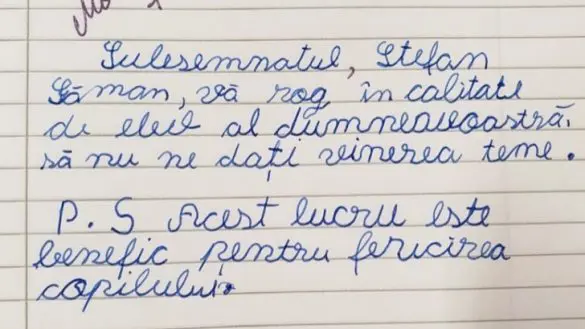 Subsemnatul, Ștefan
Găman, vă rog în calitate
de elev al dumneavoastră,
să nu ne dați vinerea teme.
P.S Acest lucru este
benefic pentru fericirea
copilului.